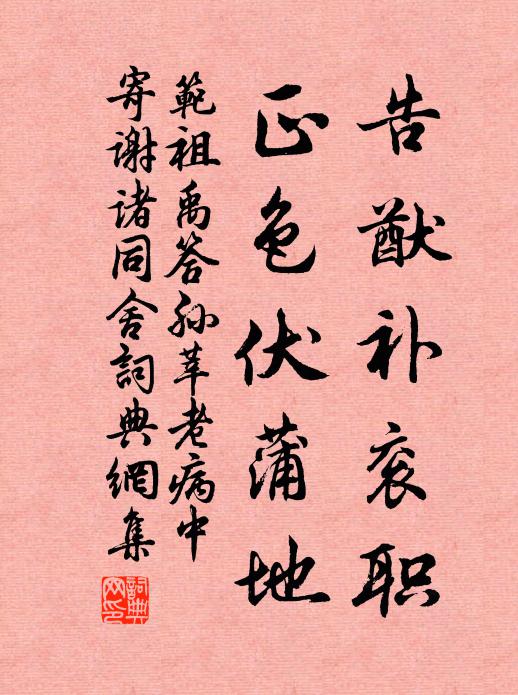 告猷补衮职
正色伏蒲地
範祖禹答孙莘老病中
寄谢诸同舍詞典網集
詞典网印